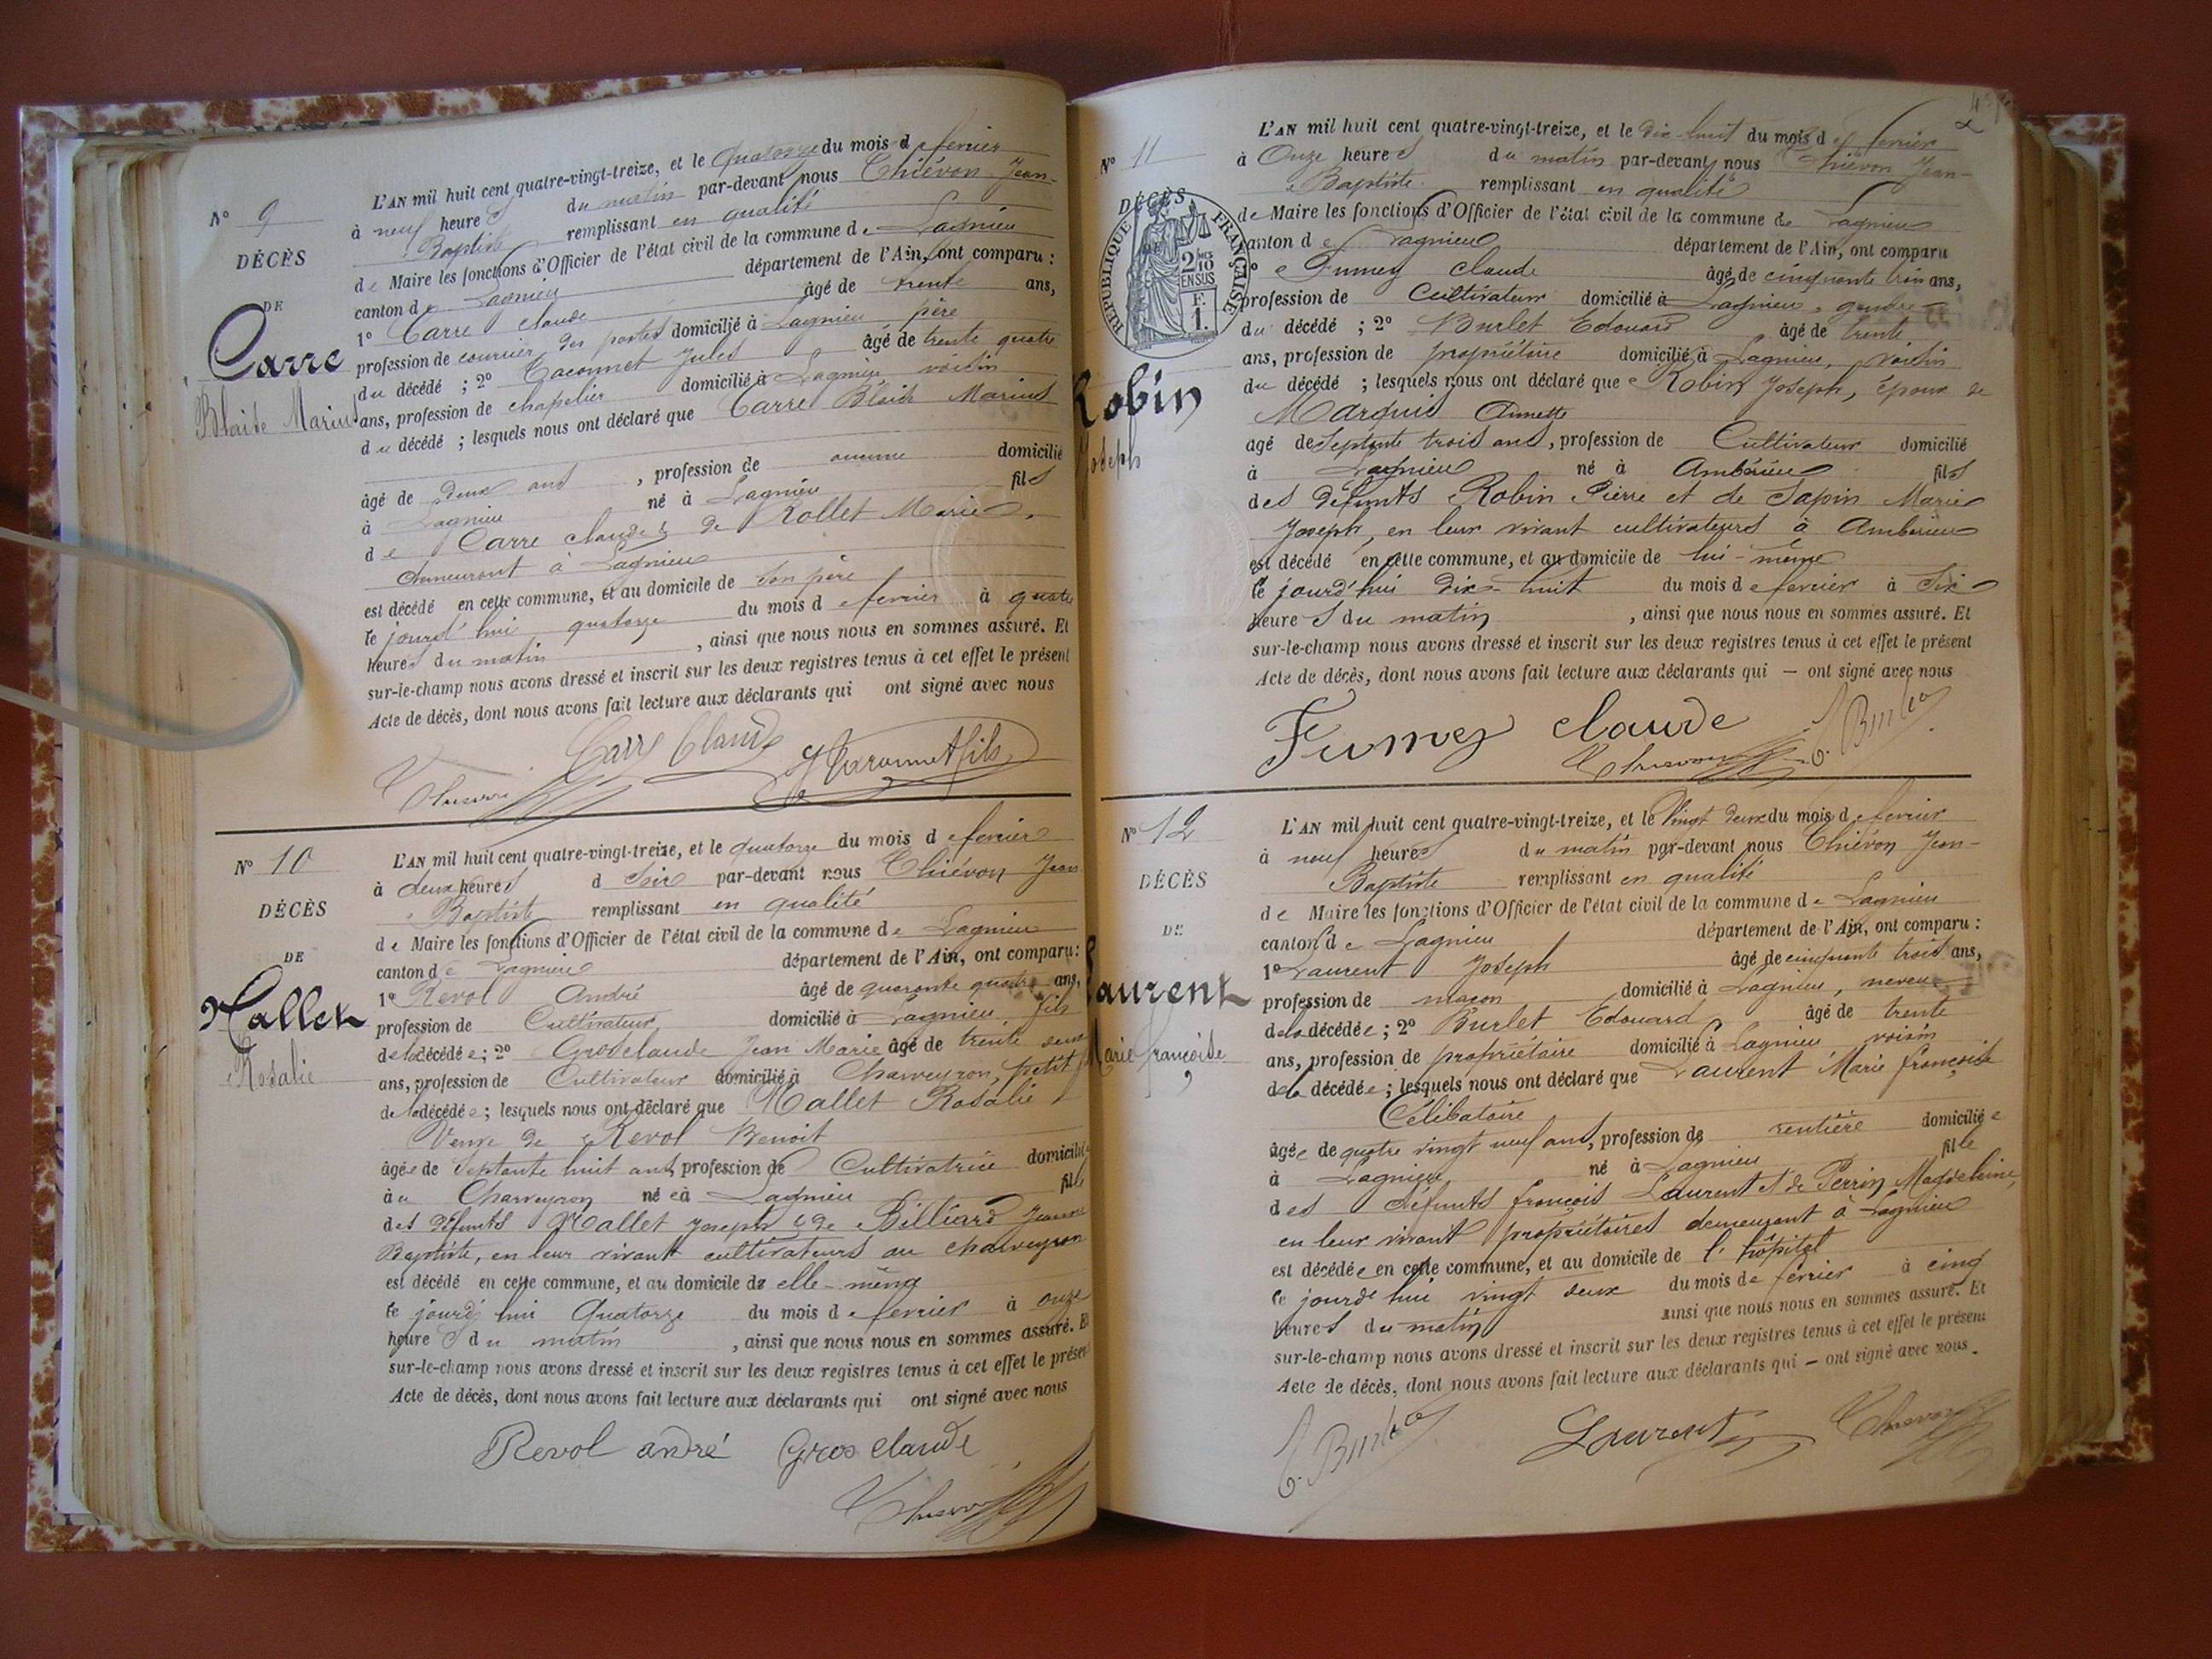 N° 9
DÉCÈS
DE
Carre
Blaise Marius
L'AN mil huit cent quatre-vingt-treize, et le Quatorze du mois de fevrier
à neuf heures du matin par-devant nous Chiévon Jean-
Baptiste remplissant en qualité
de Maire les fonctions d'Officier de l'état civil de la commune de Lagnieu
canton de Lagnieu département de l'Ain, ont comparu :
1° Carre Claude âgé de trente ans,
profession de courrier des postes domicilié à Lagnieu père
du décédé ; 2° Taconnet Jules âgé de trente quatre
ans, profession de chapelier domicilié à Lagnieu voisin
du décédé ; lesquels nous ont déclaré que Carre Blaise Marius
âgé de deux ans , profession de aucune domicilié
à Lagnieu né à Lagnieu fils
de Carre Claude & de Rollet Marie
demeurant à Lagnieu
est décédé en cette commune, et au domicile de son père
le jourd'hui quatorze du mois de fevrier à quatre
heures du matin , ainsi que nous nous en sommes assuré. Et
sur-le-champ nous avons dressé et inscrit sur les deux registres tenus à cet effet le présent
Acte de décès, dont nous avons fait lecture aux déclarants qui ont signé avec nous
Carre Claude J Taconnet fils
N° 10
DÉCÈS
DE
Mallet
Rosalie
L'AN mil huit cent quatre-vingt-treize, et le quatorze du mois de fevrier
à deux heures d soir par-devant nous Chiévon Jean
Baptiste remplissant en qualité
de Maire les fonctions d'Officier de l'état civil de la commune de Lagnieu
canton de Lagnieu département de l'Ain, ont comparu :
1° Revol André âgé de quarante quatre ans,
profession de Cultivateur domicilié à Lagnieu fils
de la décédée ; 2° Grosclaude Jean Marie âgé de trente deux
ans, profession de Cultivateur domicilié à Charveyron, petit fils
de la décédée ; lesquels nous ont déclaré que Mallet Rosalie
Veuve de Revol Benoit
âgée de septante huit ans, profession de Cultivatrice domiciliée
à u Charveyron née à Lagnieu fille
des défunts Mallet Joseph & de Billiard Jeanne
Baptiste, en leur vivant cultivateurs au Charveyron
est décédé en cette commune, et au domicile de elle-même
le jourd'hui Quatorze du mois de fevrier à onze
heures du matin , ainsi que nous nous en sommes assuré. Et
sur-le-champ nous avons dressé et inscrit sur les deux registres tenus à cet effet le présent
Acte de décès, dont nous avons fait lecture aux déclarants qui ont signé avec nous
Revol andré Gros claude
N° 11
DÉCÈS
DE
REPUBLIQUE FRANÇAISE
2 MES 10 EN SUS
F. 1.
Robin
Joseph
L'AN mil huit cent quatre-vingt-treize, et le dix-huit du mois de fevrier
à Onze heures du matin par-devant nous Chiévon Jean-
Baptiste remplissant en qualité
de Maire les fonctions d'Officier de l'état civil de la commune de Lagnieu
canton de Lagnieu département de l'Ain, ont comparu
1° Fumey Claude âgé de cinquante trois ans,
profession de Cultivateur domicilié à Lagnieu, gendre
du décédé ; 2° Burlet Edouard âgé de trente
ans, profession de propriétaire domicilié à Lagnieu, voisin
du décédé ; lesquels nous ont déclaré que Robin Joseph, époux de
Marquis Annette
âgé de septante trois ans, profession de Cultivateur domicilié
à Lagnieu né à Ambérieu fils
des défunts Robin Pierre et de Sapin Marie
Joseph, en leur vivant cultivateurs à Ambérieu
est décédé en cette commune, et au domicile de lui-même
le jourd'hui dix-huit du mois de fevrier à six
heures du matin , ainsi que nous nous en sommes assuré. Et
sur-le-champ nous avons dressé et inscrit sur les deux registres tenus à cet effet le présent
Acte de décès, dont nous avons fait lecture aux déclarants qui — ont signé avec nous
Fumey claude E. Burlet
N° 12
DÉCÈS
DE
Laurent
Marie françoise
L'AN mil huit cent quatre-vingt-treize, et le Vingt deux du mois de fevrier
à neuf heures du matin par-devant nous Chiévon Jean-
Baptiste remplissant en qualité
de Maire les fonctions d'Officier de l'état civil de la commune de Lagnieu
canton de Lagnieu département de l'Ain, ont comparu :
1° Laurent Joseph âgé de cinquante trois ans,
profession de maçon domicilié à Lagnieu, neveu
de la décédée ; 2° Burlet Edouard âgé de trente
ans, profession de propriétaire domicilié à Lagnieu voisin
de la décédée ; lesquels nous ont déclaré que Laurent Marie françoise
Célibataire
âgée de quatre vingt neuf ans, profession de rentière domiciliée
à Lagnieu né à Lagnieu fille
des défunts françois Laurent & de Perrin Magdeleine,
en leur vivant propriétaires demeurant à Lagnieu
est décédée en cette commune, et au domicile de l'hôpital
le jourd'hui vingt deux du mois de fevrier à cinq
heures du matin ainsi que nous nous en sommes assuré. Et
sur-le-champ nous avons dressé et inscrit sur les deux registres tenus à cet effet le présent
Acte de décès, dont nous avons fait lecture aux déclarants qui — ont signé avec nous.
E. Burlet Laurent